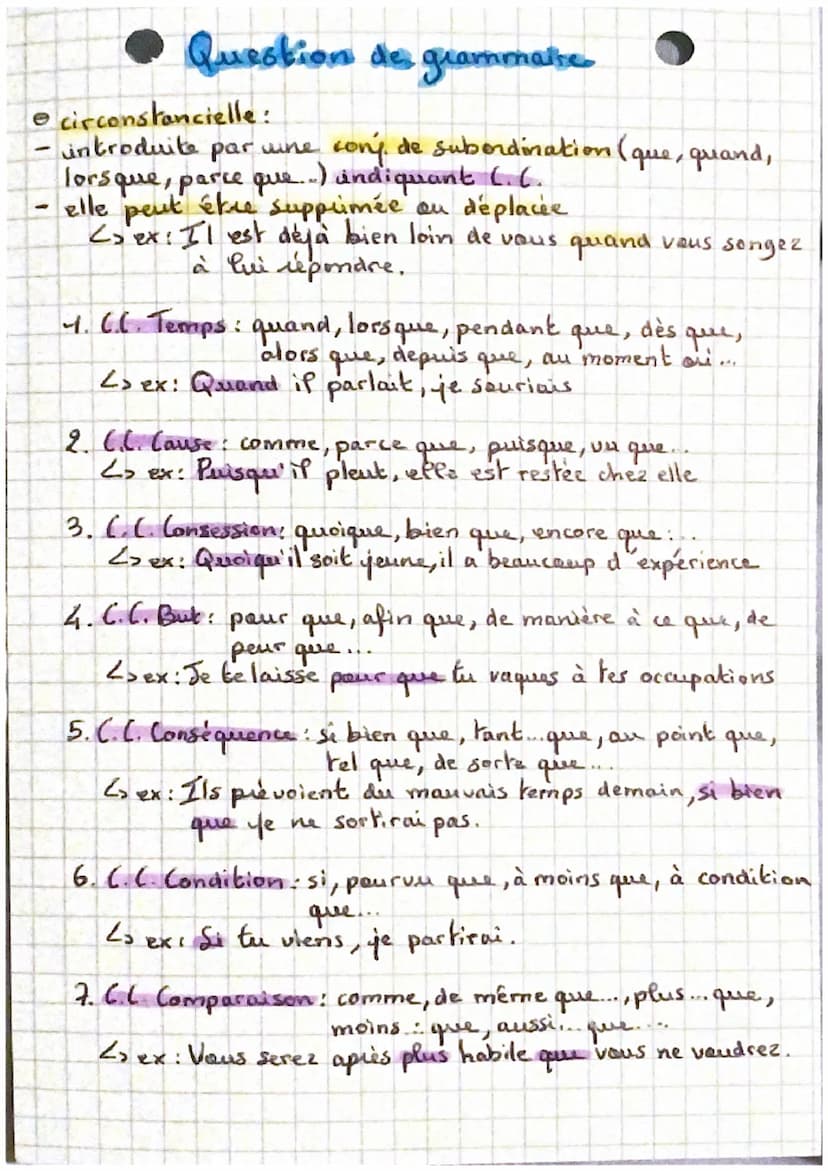 Question de grammaire
⊖ circonstancielle :
- introduite par une conj. de subordination (que, quand,
lorsque, parce que...) indiquant C.C.
- elle peut être supprimée ou déplacée
↳ ex : Il est déjà bien loin de vous quand vous songez
à lui répondre.
1. C.C. Temps : quand, lorsque, pendant que, dès que,
alors que, depuis que, au moment où ...
↳ ex : Quand il parlait, je souriais
2. C.C. Cause : comme, parce que, puisque, vu que...
↳ ex : Puisqu'il pleut, elle est restée chez elle
3. C.C. Consession : quoique, bien que, encore que ...
↳ ex : Quoiqu'il soit jeune, il a beaucoup d'expérience
4. C.C. But : pour que, afin que, de manière à ce que, de
peur que ...
↳ ex : Je te laisse pour que tu vaques à tes occupations
5. C.C. Conséquence : si bien que, tant...que, au point que,
tel que, de sorte que ...
↳ ex : Ils prévoient du mauvais temps demain, si bien
que je ne sortirai pas.
6. C.C. Condition : si, pourvu que, à moins que, à condition
que...
↳ ex : Si tu viens, je partirai.
7. C.C. Comparaison : comme, de même que..., plus... que,
moins ... que, aussi... que ...
↳ ex : Vous serez après plus habile que vous ne voudrez.